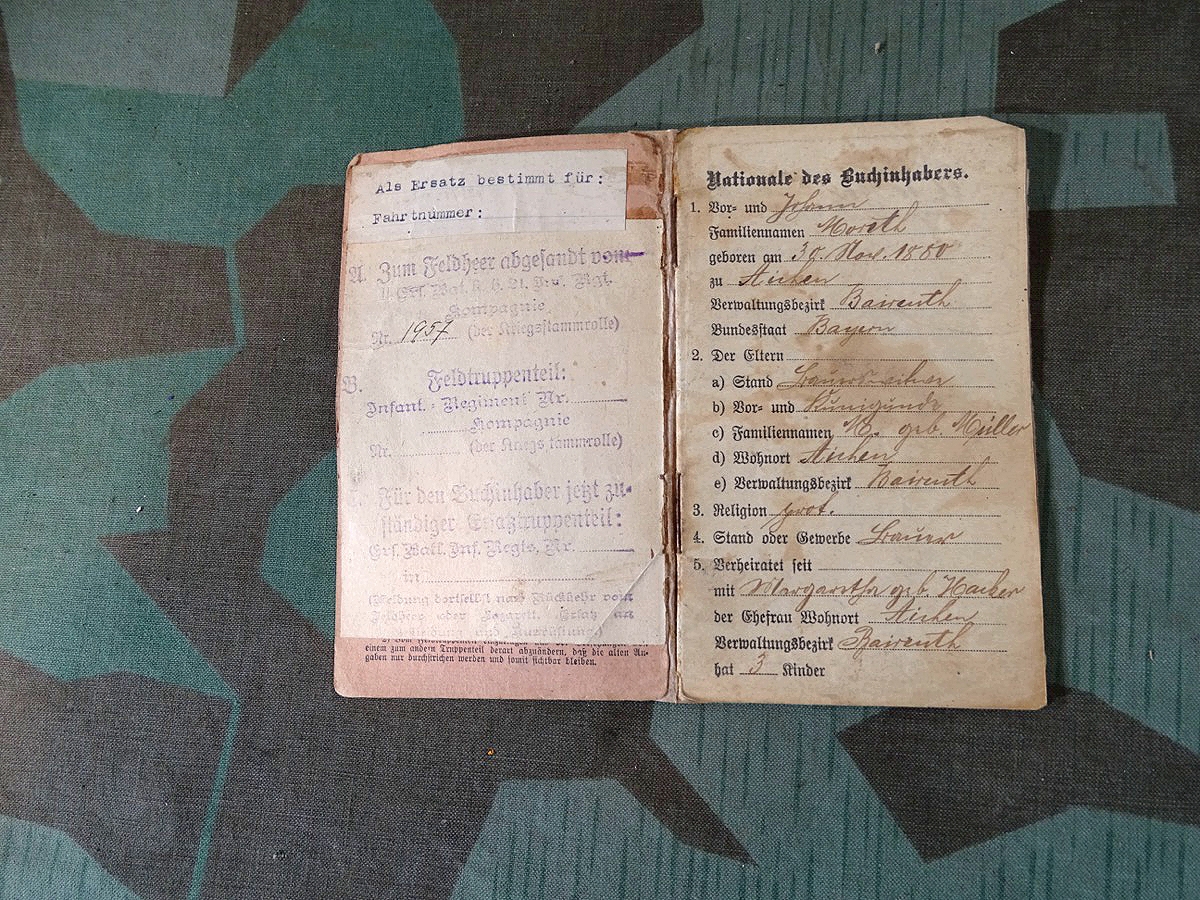 Als Ersatz bestimmt für:
Fahrtnummer:
A. Zum Feldheer abgesandt vom
Kompagnie
Nr. 1957 (der Kriegsstammrolle)
B. Feldtruppenteil:
Infant.-Regiment Nr.
Kompagnie
Nr. (der Kriegsstammrolle)
Für den Buchinhaber jetzt zu-
ständiger Ersatztruppenteil:
Ers. Batl. Inf. Regts. Nr.
in
(Meldung dortselbst nach Rückkehr vom
Feldheer oder Lazarett. Ersatz an
und Ausrüstung)
einem zum andern Truppenteil derart abzuändern, daß die alten An-
gaben nur durchstrichen werden und somit sichtbar bleiben.
Nationale des Buchinhabers.
1. Vor- und Johann
Familiennamen Moreth
geboren am 30. Nov. 1880
zu Aichen
Verwaltungsbezirk Baireuth
Bundesstaat Bayern
2. Der Eltern
a) Stand
b) Vor- und Kunigunde
c) Familiennamen M. geb. Müller
d) Wohnort Aichen
e) Verwaltungsbezirk Baireuth
3. Religion prot.
4. Stand oder Gewerbe Bauer
5. Verheiratet seit
mit Margaretha geb. Hacker
der Ehefrau Wohnort Aichen
Verwaltungsbezirk Baireuth
hat 3 Kinder